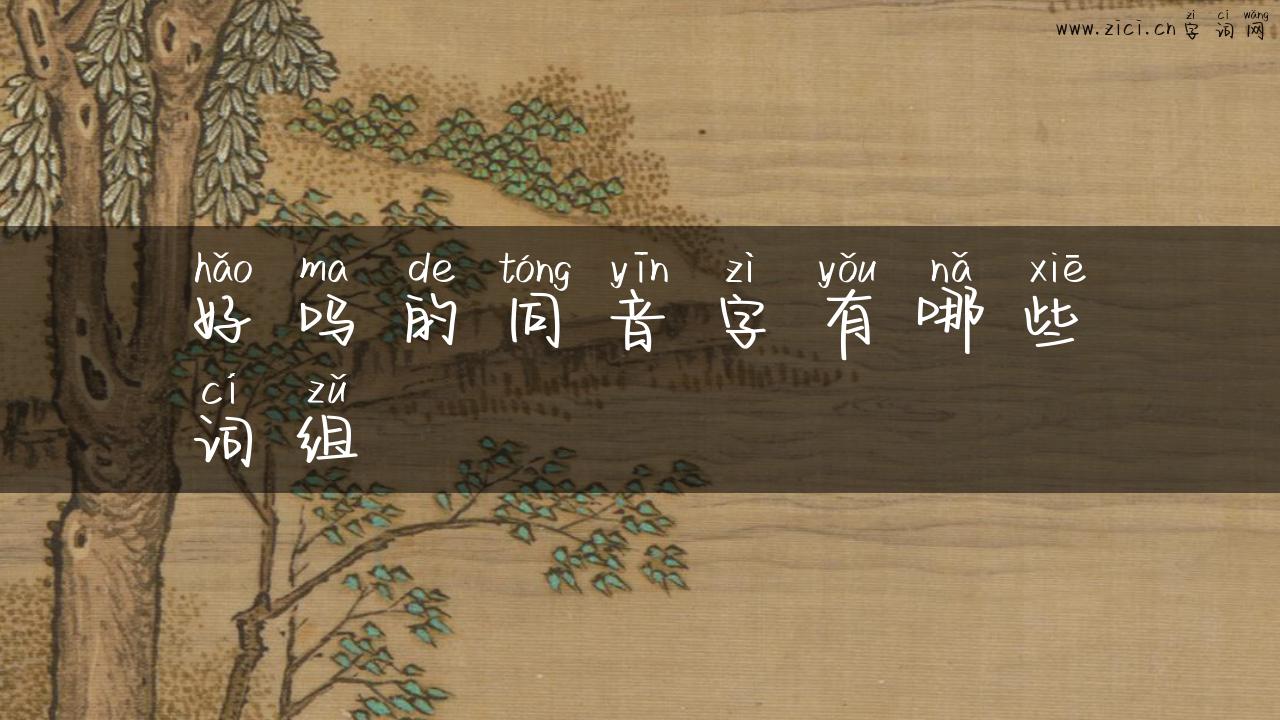 zì cí wǎng
www.zici.cn 字词网
hǎo ma de tóng yīn zì yǒu nǎ xiē
好吗的同音字有哪些
cí zǔ
词组